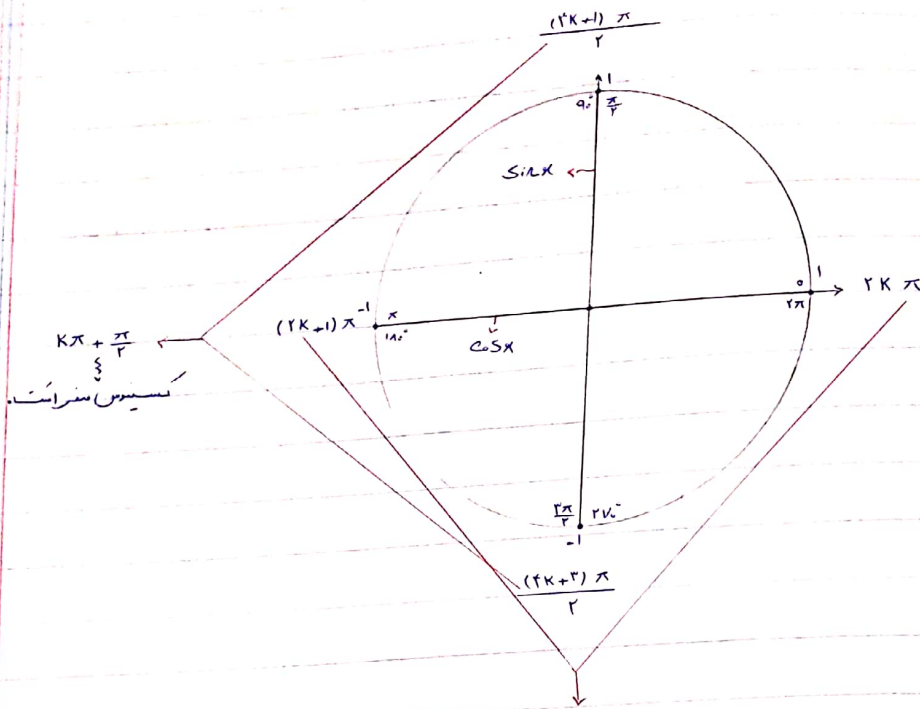 (۴K+۱) π / ۲
۱
۹۰° π/۲
Sin x
۰ ۱
۲π
۲K π
(۲K+۱) π -۱
π
۱۸۰°
Cos x
Kπ + π/۲
کسینوس صفر است.
۳π/۲ ۲۷۰°
-۱
(۴K+۳) π / ۲